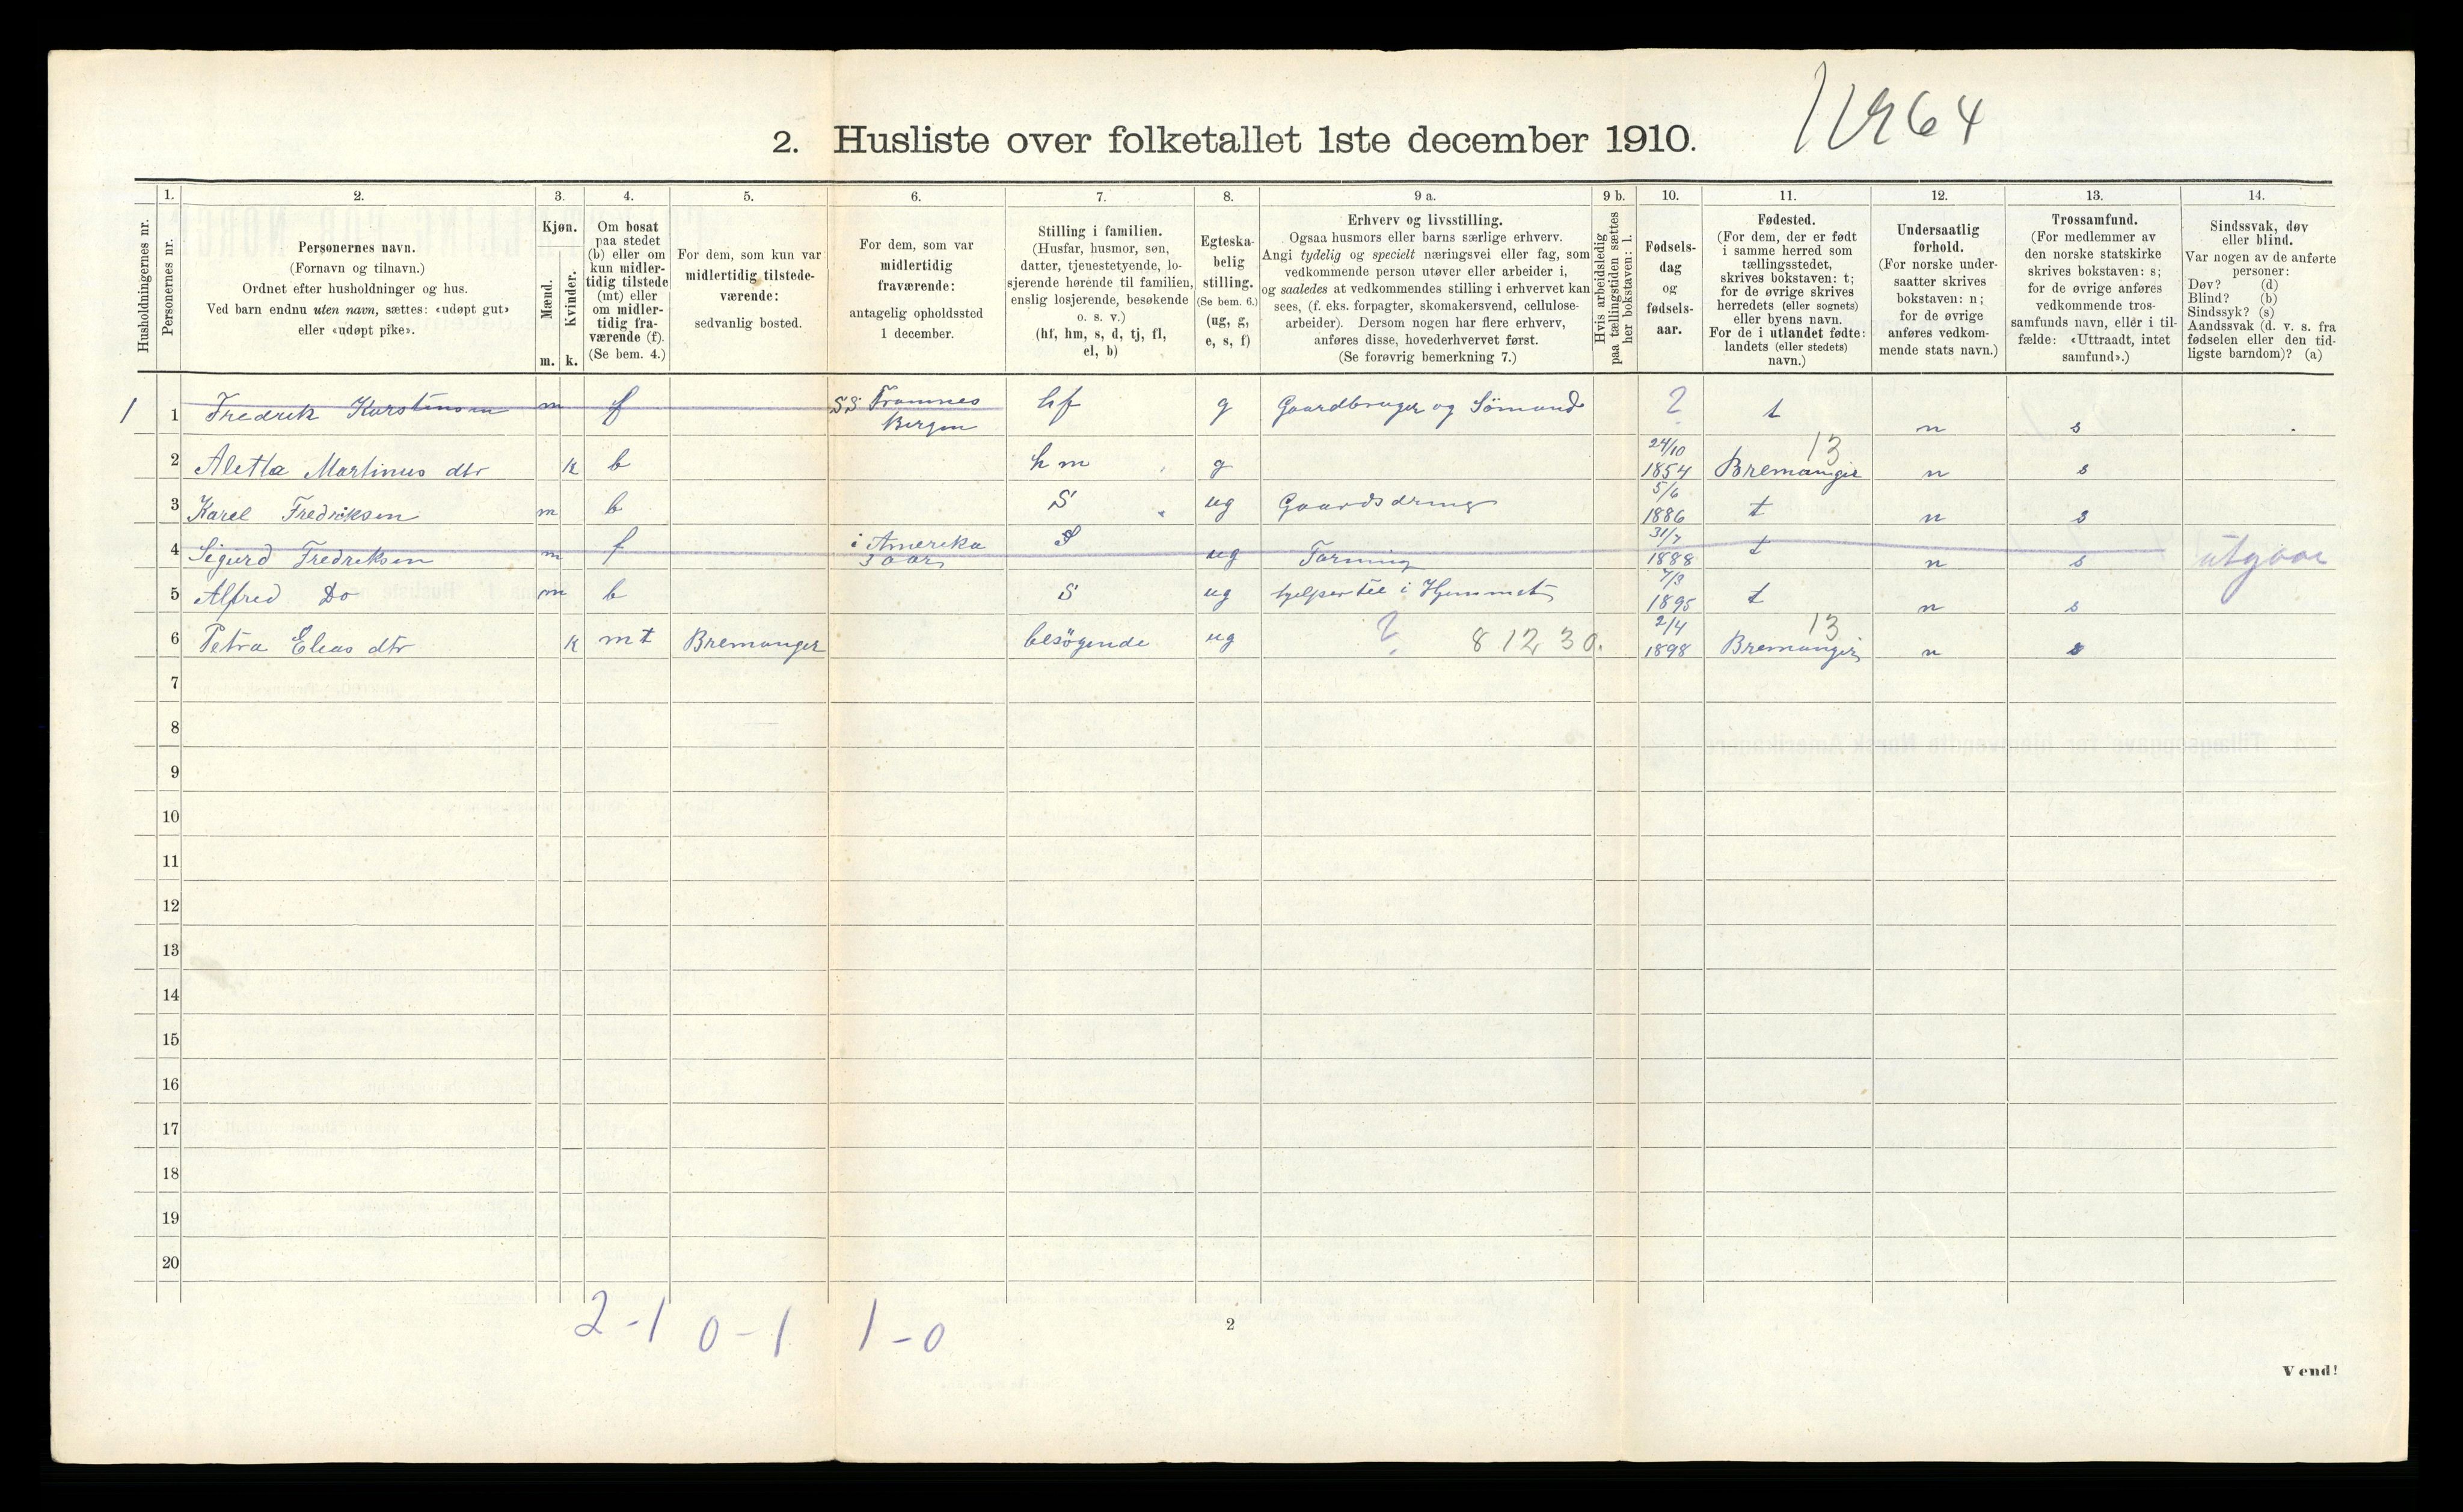 2. Husliste over folketallet 1ste december 1910.
64
Husholdningernes nr.
1. Personernes nr.
2. Personernes navn.
(Fornavn og tilnavn.)
Ordnet efter husholdninger og hus.
Ved barn endnu uten navn, sættes: «udøpt gut»
eller «udøpt pike».
3. Kjøn.
Mænd. m.
Kvinder. k.
4. Om bosat
paa stedet
(b) eller om
kun midler-
tidig tilstede
(mt) eller
om midler-
tidig fra-
værende (f).
(Se bem. 4.)
5. For dem, som kun var
midlertidig tilstede-
værende:
sedvanlig bosted.
6. For dem, som var
midlertidig
fraværende:
antagelig opholdssted
1 december.
7. Stilling i familien.
(Husfar, husmor, søn,
datter, tjenestetyende, lo-
sjerende hørende til familien,
enslig losjerende, besøkende
o. s. v.)
(hf, hm, s, d, tj, fl,
el, b)
8. Egteska-
belig
stilling.
(Se bem. 6.)
(ug, g,
e, s, f)
9 a. Erhverv og livsstilling.
Ogsaa husmors eller barns særlige erhverv.
Angi tydelig og specielt næringsvei eller fag, som
vedkommende person utøver eller arbeider i,
og saaledes at vedkommendes stilling i erhvervet kan
sees, (f. eks. forpagter, skomakersvend, cellulose-
arbeider). Dersom nogen har flere erhverv,
anføres disse, hovederhvervet først.
(Se forøvrig bemerkning 7.)
9 b. Hvis arbeidsledig
paa tællingstiden sættes
her bokstaven: l.
10. Fødsels-
dag
og
fødsels-
aar.
11. Fødested.
(For dem, der er født
i samme herred som
tællingsstedet,
skrives bokstaven: t;
for de øvrige skrives
herredets (eller sognets)
eller byens navn.
For de i utlandet fødte:
landets (eller stedets)
navn.)
12. Undersaatlig
forhold.
(For norske under-
saatter skrives
bokstaven: n;
for de øvrige
anføres vedkom-
mende stats navn.)
13. Trossamfund.
(For medlemmer av
den norske statskirke
skrives bokstaven: s;
for de øvrige anføres
vedkommende tros-
samfunds navn, eller i til-
fælde: «Uttraadt, intet
samfund».)
14. Sindssvak, døv
eller blind.
Var nogen av de anførte
personer:
Døv? (d)
Blind? (b)
Sindssyk? (s)
Aandssvak (d. v. s. fra
fødselen eller den tid-
ligste barndom)? (a)
1 1 Fredrik Karstensen m f SS Framnes Bergen hf g Gaardbruger og Sömand ? t n s
2 Aletta Martinus dtr k b hm g 24/10 1854 Bremanger 13 n s
3 Karel Fredriksen m b S ug Gaardsdreng 5/6 1886 t n s
4 Sigurd Fredriksen m f i Amerika 3 aar S ug 31/7 1888 t n s utgaar
5 Alfred Do m b S ug hjelper til i Hjemmet 7/3 1895 t n s
6 Petra Elias dtr k mt Bremanger besögende ug ? 8 12 30. 2/4 1898 Bremanger 13 n s
7
8
9
10
11
12
13
14
15
16
17
18
19
20
2-1 0-1 1-0
2
Vend!